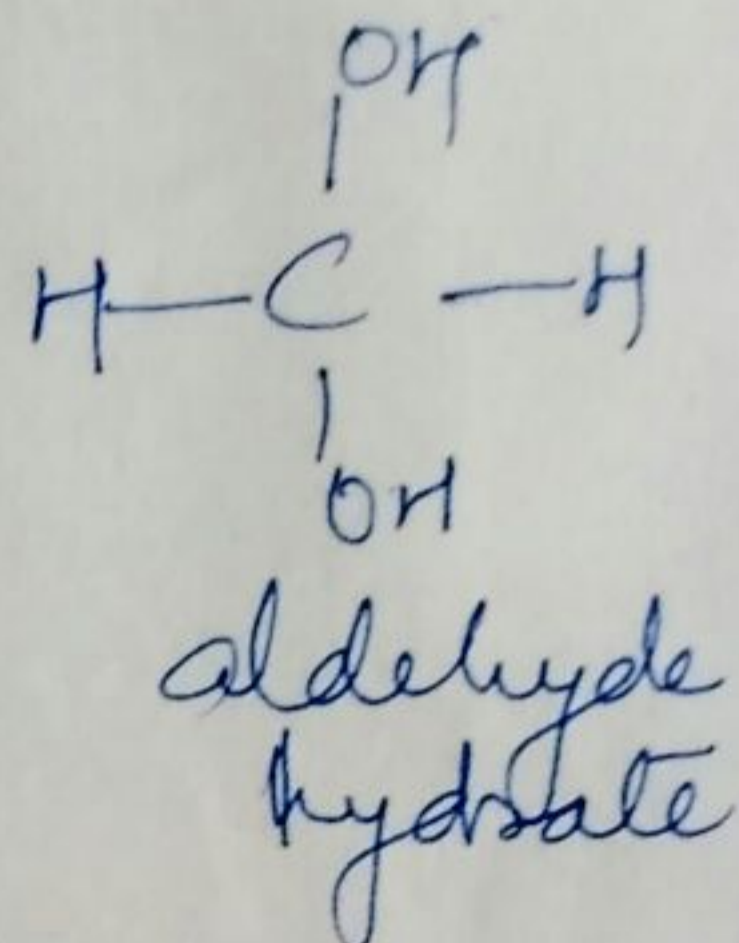 OH
H—C—H
OH
aldehyde
hydrate